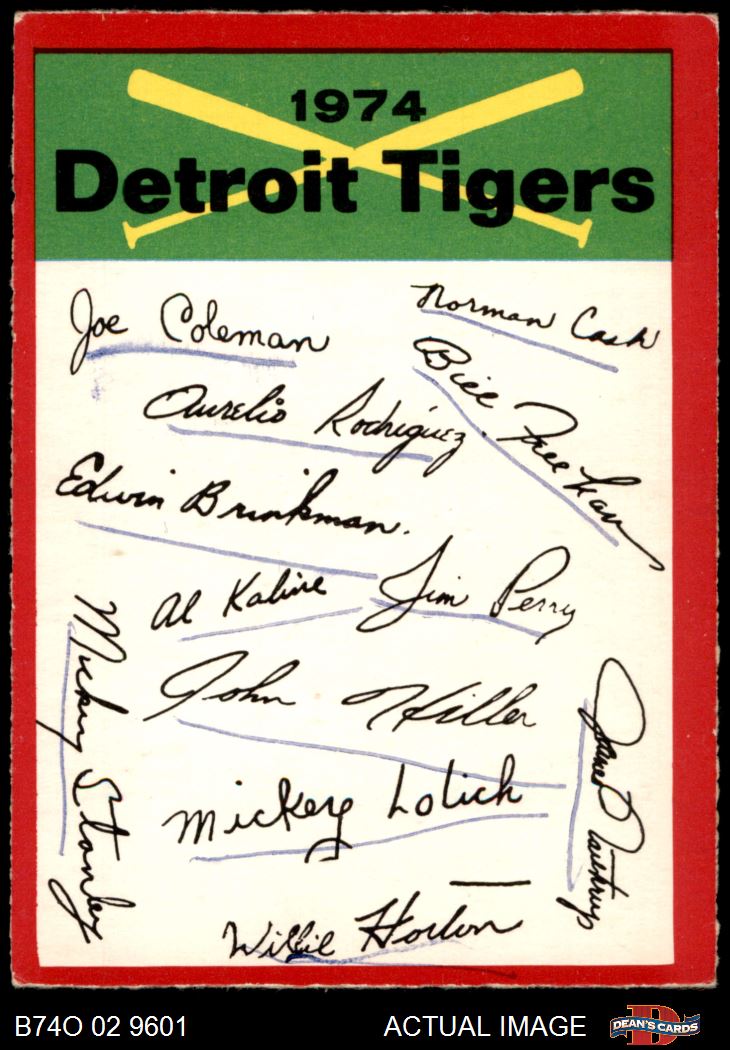 1974
Detroit Tigers
Joe Coleman
Norman Cash
Bill Freehan
Aurelio Rodriguez.
Edwin Brinkman.
Al Kaline
Jim Perry
Mickey Stanley
John Hiller
James Northrup
Mickey Lolich
Willie Horton
B74O 02 9601
ACTUAL IMAGE
DEAN'S CARDS